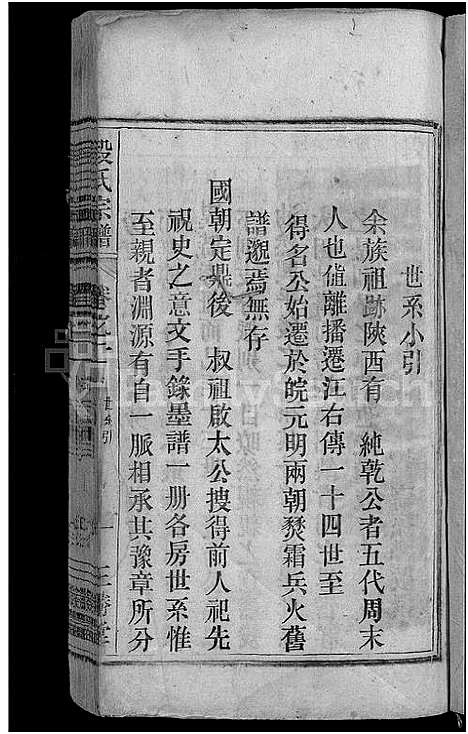 世系小引
余族祖跡陝西有 純乾公者五代周末
人也值離播遷江右傳一十四世至
得名公始遷於皖元明兩朝燹霜兵火舊
譜邈焉無存
國朝定鼎後 叔祖啟太公搜得前人祀先
祝史之意文手錄墨譜一册各房世系惟
至親者淵源有自一脈相承其豫章所分
段氏宗譜
卷之一